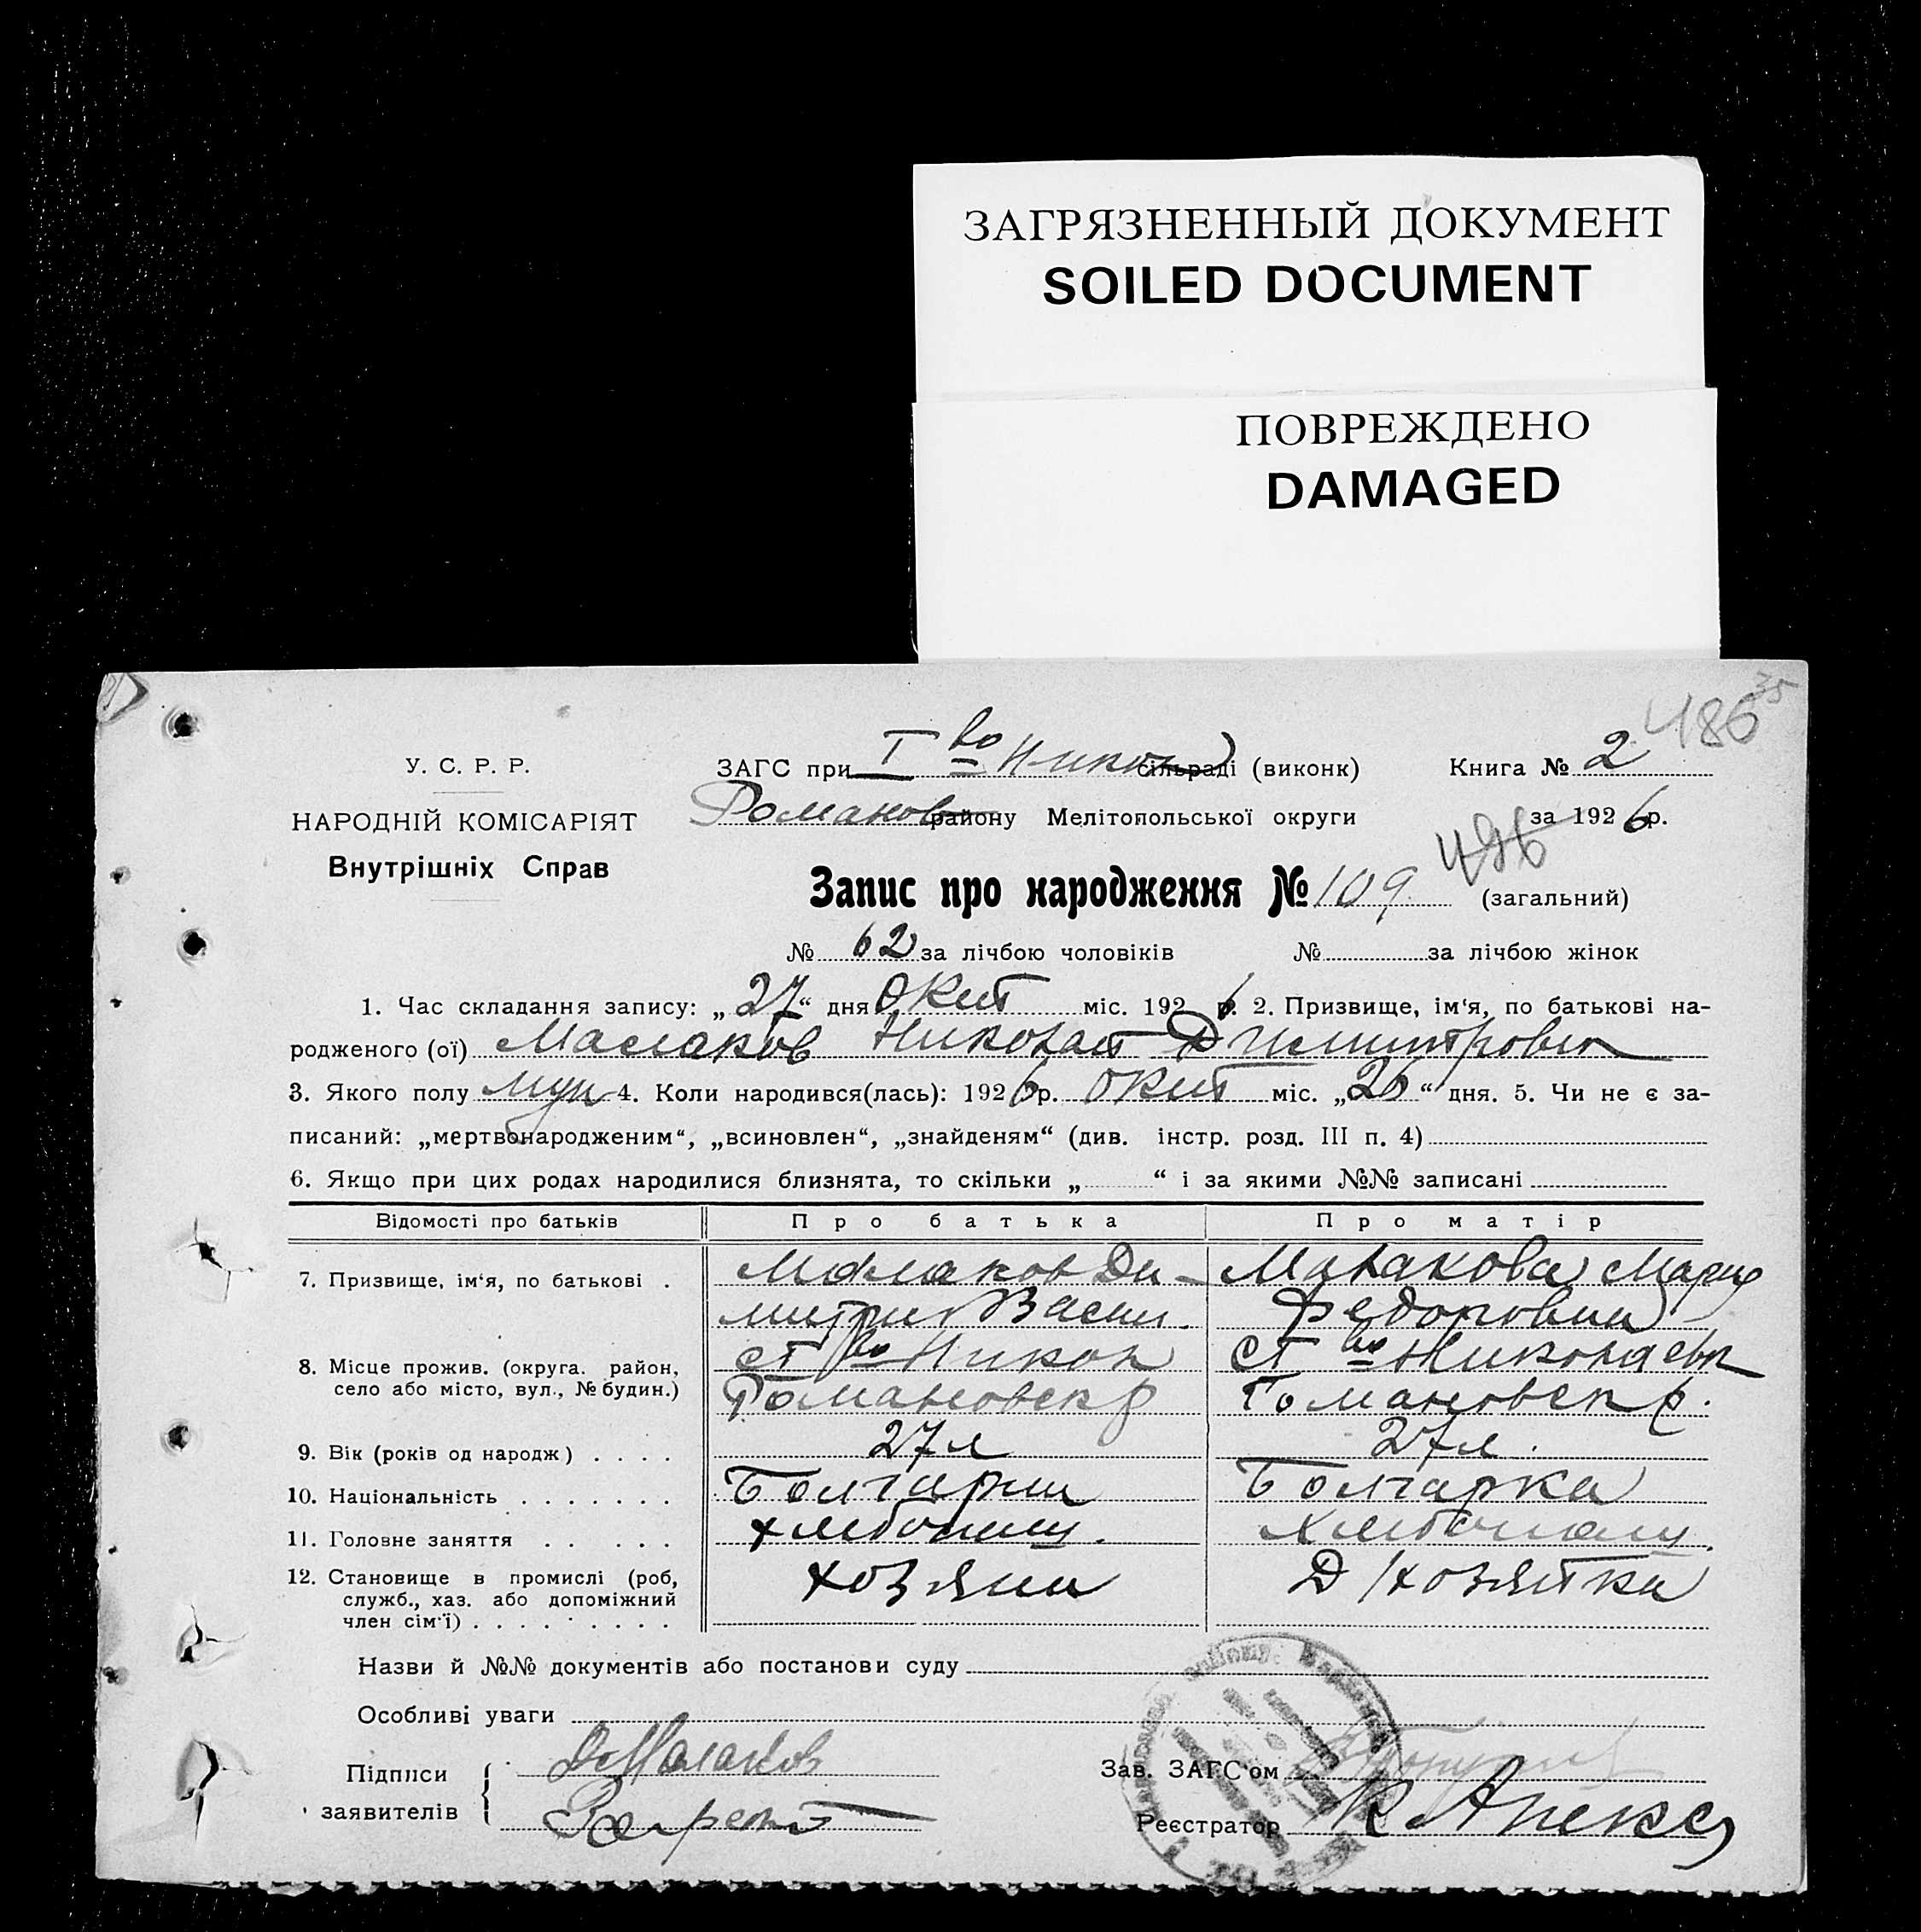 ЗАГРЯЗНЕННЫЙ ДОКУМЕНТ
SOILED DOCUMENT
ПОВРЕЖДЕНО
DAMAGED
35
486
У. С. Р. Р.
НАРОДНІЙ КОМІСАРІЯТ
Внутрішніх Справ
ЗАГС при І во Никол сільраді (виконк) Книга № 2
Романов району Мелітопольської округи за 1926 р.
486
Запис про народження № 109 (загальний)
№ 62 за лічбою чоловіків № за лічбою жінок
1. Час складання запису: „27“ дня Окт міс. 1926 р. 2. Призвище, ім‘я, по батькові на-
родженого (ої) Малаков Николай Димитрович
3. Якого полу муж 4. Коли народився(лась): 1926 р. Окт міс. „26“ дня. 5. Чи не є за-
писаний: „мертвонародженим“, „всиновлен“, „знайденям“ (див. інстр. розд. III п. 4)
6. Якщо при цих родах народилися близнята, то скільки „ “ і за якими №№ записані
Відомості про батьків Про батька Про матір
7. Призвище, ім‘я, по батькові . Малаков Ди- Малакова Мария
митрий Васил. Федоровна
8. Місце прожив. (округа. район, ст во Никол ст во Николаевк
село або місто, вул., № будин.) Романовск р Романовск р.
9. Вік (років од народж) . . . . 27 л 27 л.
10. Національність . . . . . . . Болгарин Болгарка
11. Головне заняття . . . . . хлебопащ. хлебопащ.
12. Становище в промислі (роб, хозяин Д/хозяйка
служб., хаз. або допоміжний
член сім‘ї) . . . . . . . .
Назви й №№ документів або постанови суду
Особливі уваги
Підписи Д Малаков Зав. ЗАГС‘ом
заявителів Реєстратор К Алекс